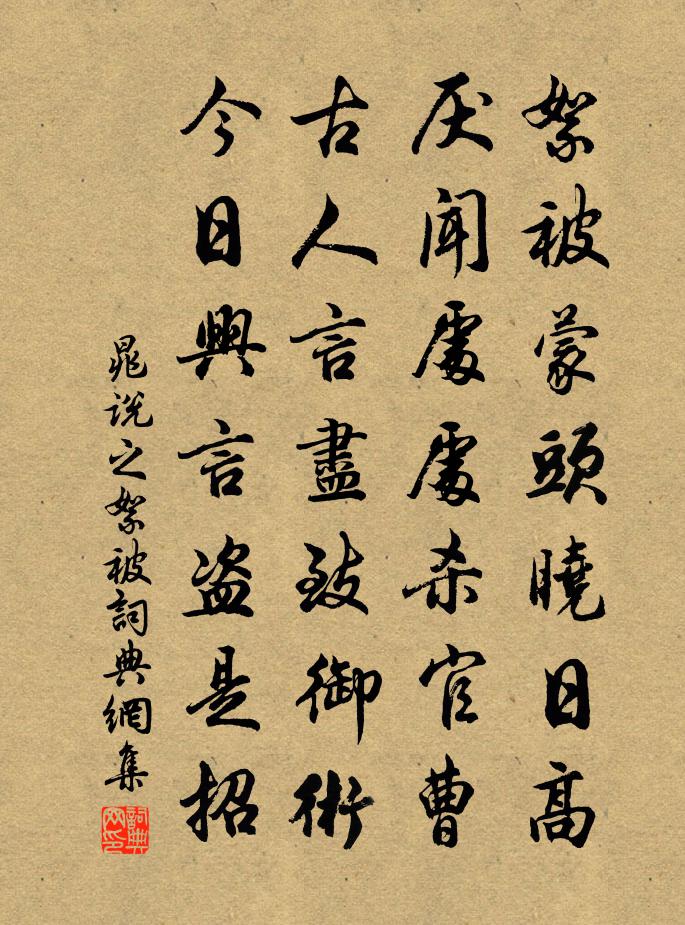 絮被蒙頭曉日高
厌聞處處杀官曹
古人言盡致御術
今日興言盗是招
晁說之絮被詞典網集
詞典网印